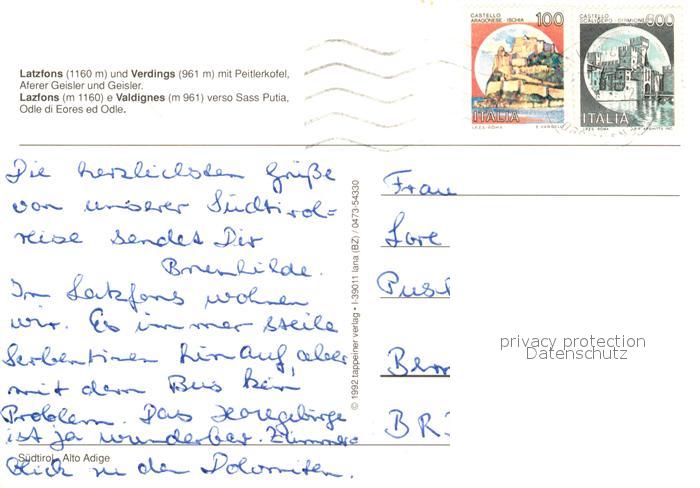 CASTELLO
ARAGONESE - ISCHIA
100
ITALIA
I.P.Z.S. - ROMA
CASTELLO
SCALIGERO - SIRMIONE
600
ITALIA
I.P.Z.S. - ROMA
Latzfons (1160 m) und Verdings (961 m) mit Peitlerkofel,
Aferer Geisler und Geisler.
Lazfons (m 1160) e Valdignes (m 961) verso Sass Putia,
Odle di Eores ed Odle.
Die herzlichsten Grüße
von unserer Südtirol=
reise sendet Dir
Brunhilde.
In Latzfons wohnen
wir. Es immer steile
Serbentinen hinauf, aber
mit dem Bus kein
Problem. Das Hochgebirge
ist ja wunderbar. Zimmer=
blick zu den Dolomiten.
Südtirol - Alto Adige
© 1992 tappeiner verlag • I-39011 lana (BZ) / 0473-54330
Frau
Lore
BR
privacy protection
Datenschutz